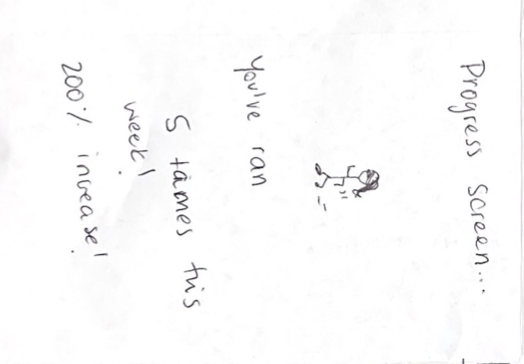 Progress Screen...
You've ran
5 times this
week!
200% increase!